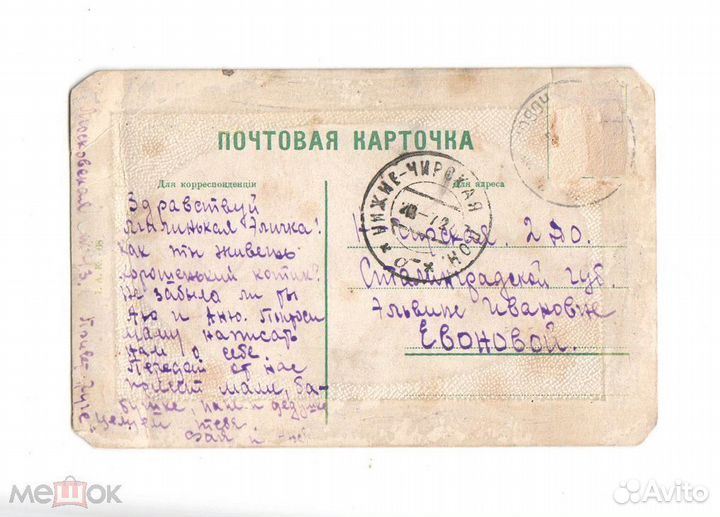 ПОЧТОВАЯ КАРТОЧКА
Для корреспонденціи
Для адреса
НИЖНЕ-ЧИРСКАЯ ДОН.
Здравствуй
Миленькая Эличка!
Как ты живешь
хорошенький котик?
Не забыла ли ты
Аю и Аню. Попроси
маму написать
нам о себе.
Передай от нас
привет маме, ба-
бушке, папе и дедушке
целуем тебя.
Московская
Привет
2 До.
Сталинградской губ.
Эльвире Ивановне
Евоновой.
мешок
Avito